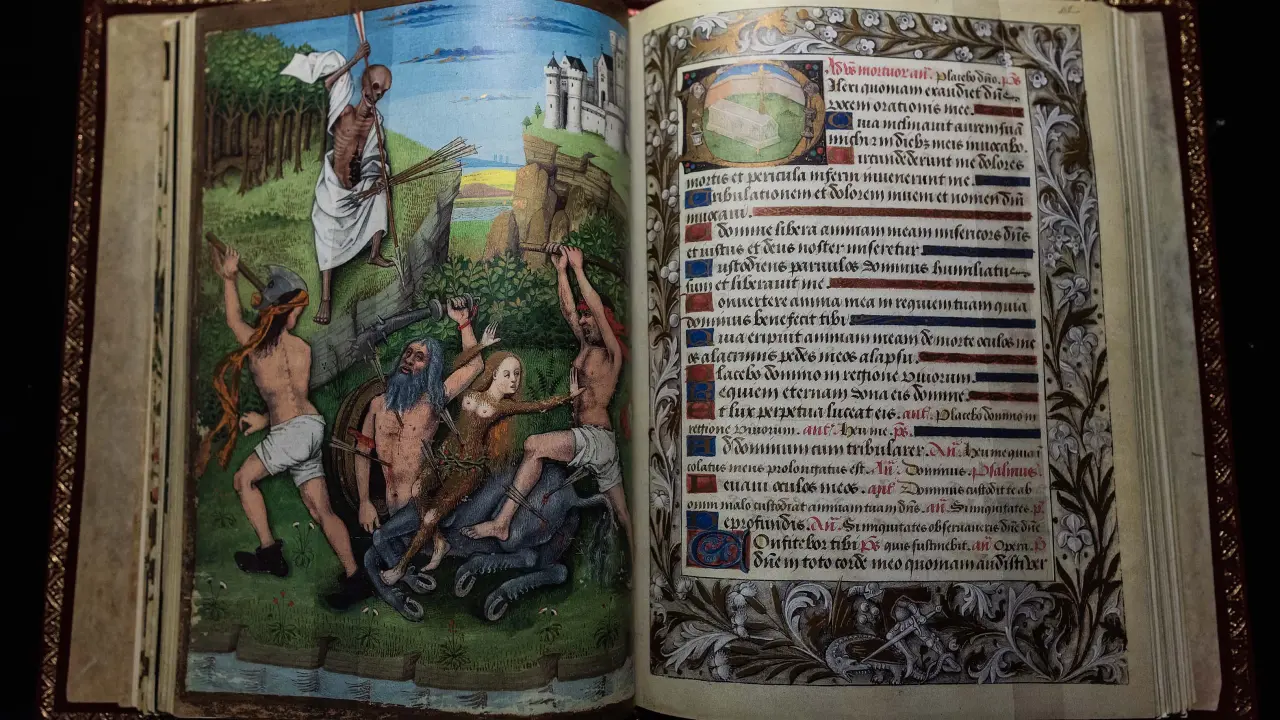 Ad vs mortuor an. Placebo dno. ps
ilexi quoniam exaudiet dns
vocem orationis mee.
uia inclinavit aurem sua
michi et in dieb meis invocabo.
ircundederunt me dolores
mortis et pericula inferni invenerunt me.
ribulationem et dolorem inveni et nomen dni
invocavi.
domine libera animam meam misericors dns
et iustus et deus noster miseretur
ustodiens parvulos dominus humiliatus
sum et liberavit me
onvertere anima mea in requiem tuam quia
dominus benefecit tibi
uia eripuit animam meam de morte oculos me
os a lacrimis pedes meos a lapsu.
lacebo domino in regione vivorum.
equiem eternam dona eis domine.
t lux perpetua luceat eis. ant. Placebo domino in
regione vivorum. ant. Heu me. ps.
d dominum cum tribularer. An. Heu me quia
colatus meus prolongatus est. An. Dominus. Psalmus.
evavi oculos meos. ant. Dominus custodit te ab
omni malo custodiat animam tuam dns. an. Si iniquitates. p.
e profundis. An. Si iniquitates observaveris dne dne
Confitebor tibi ps quis sustinebit. an Opera. p
dne in toto corde meo quoniam audisti ver